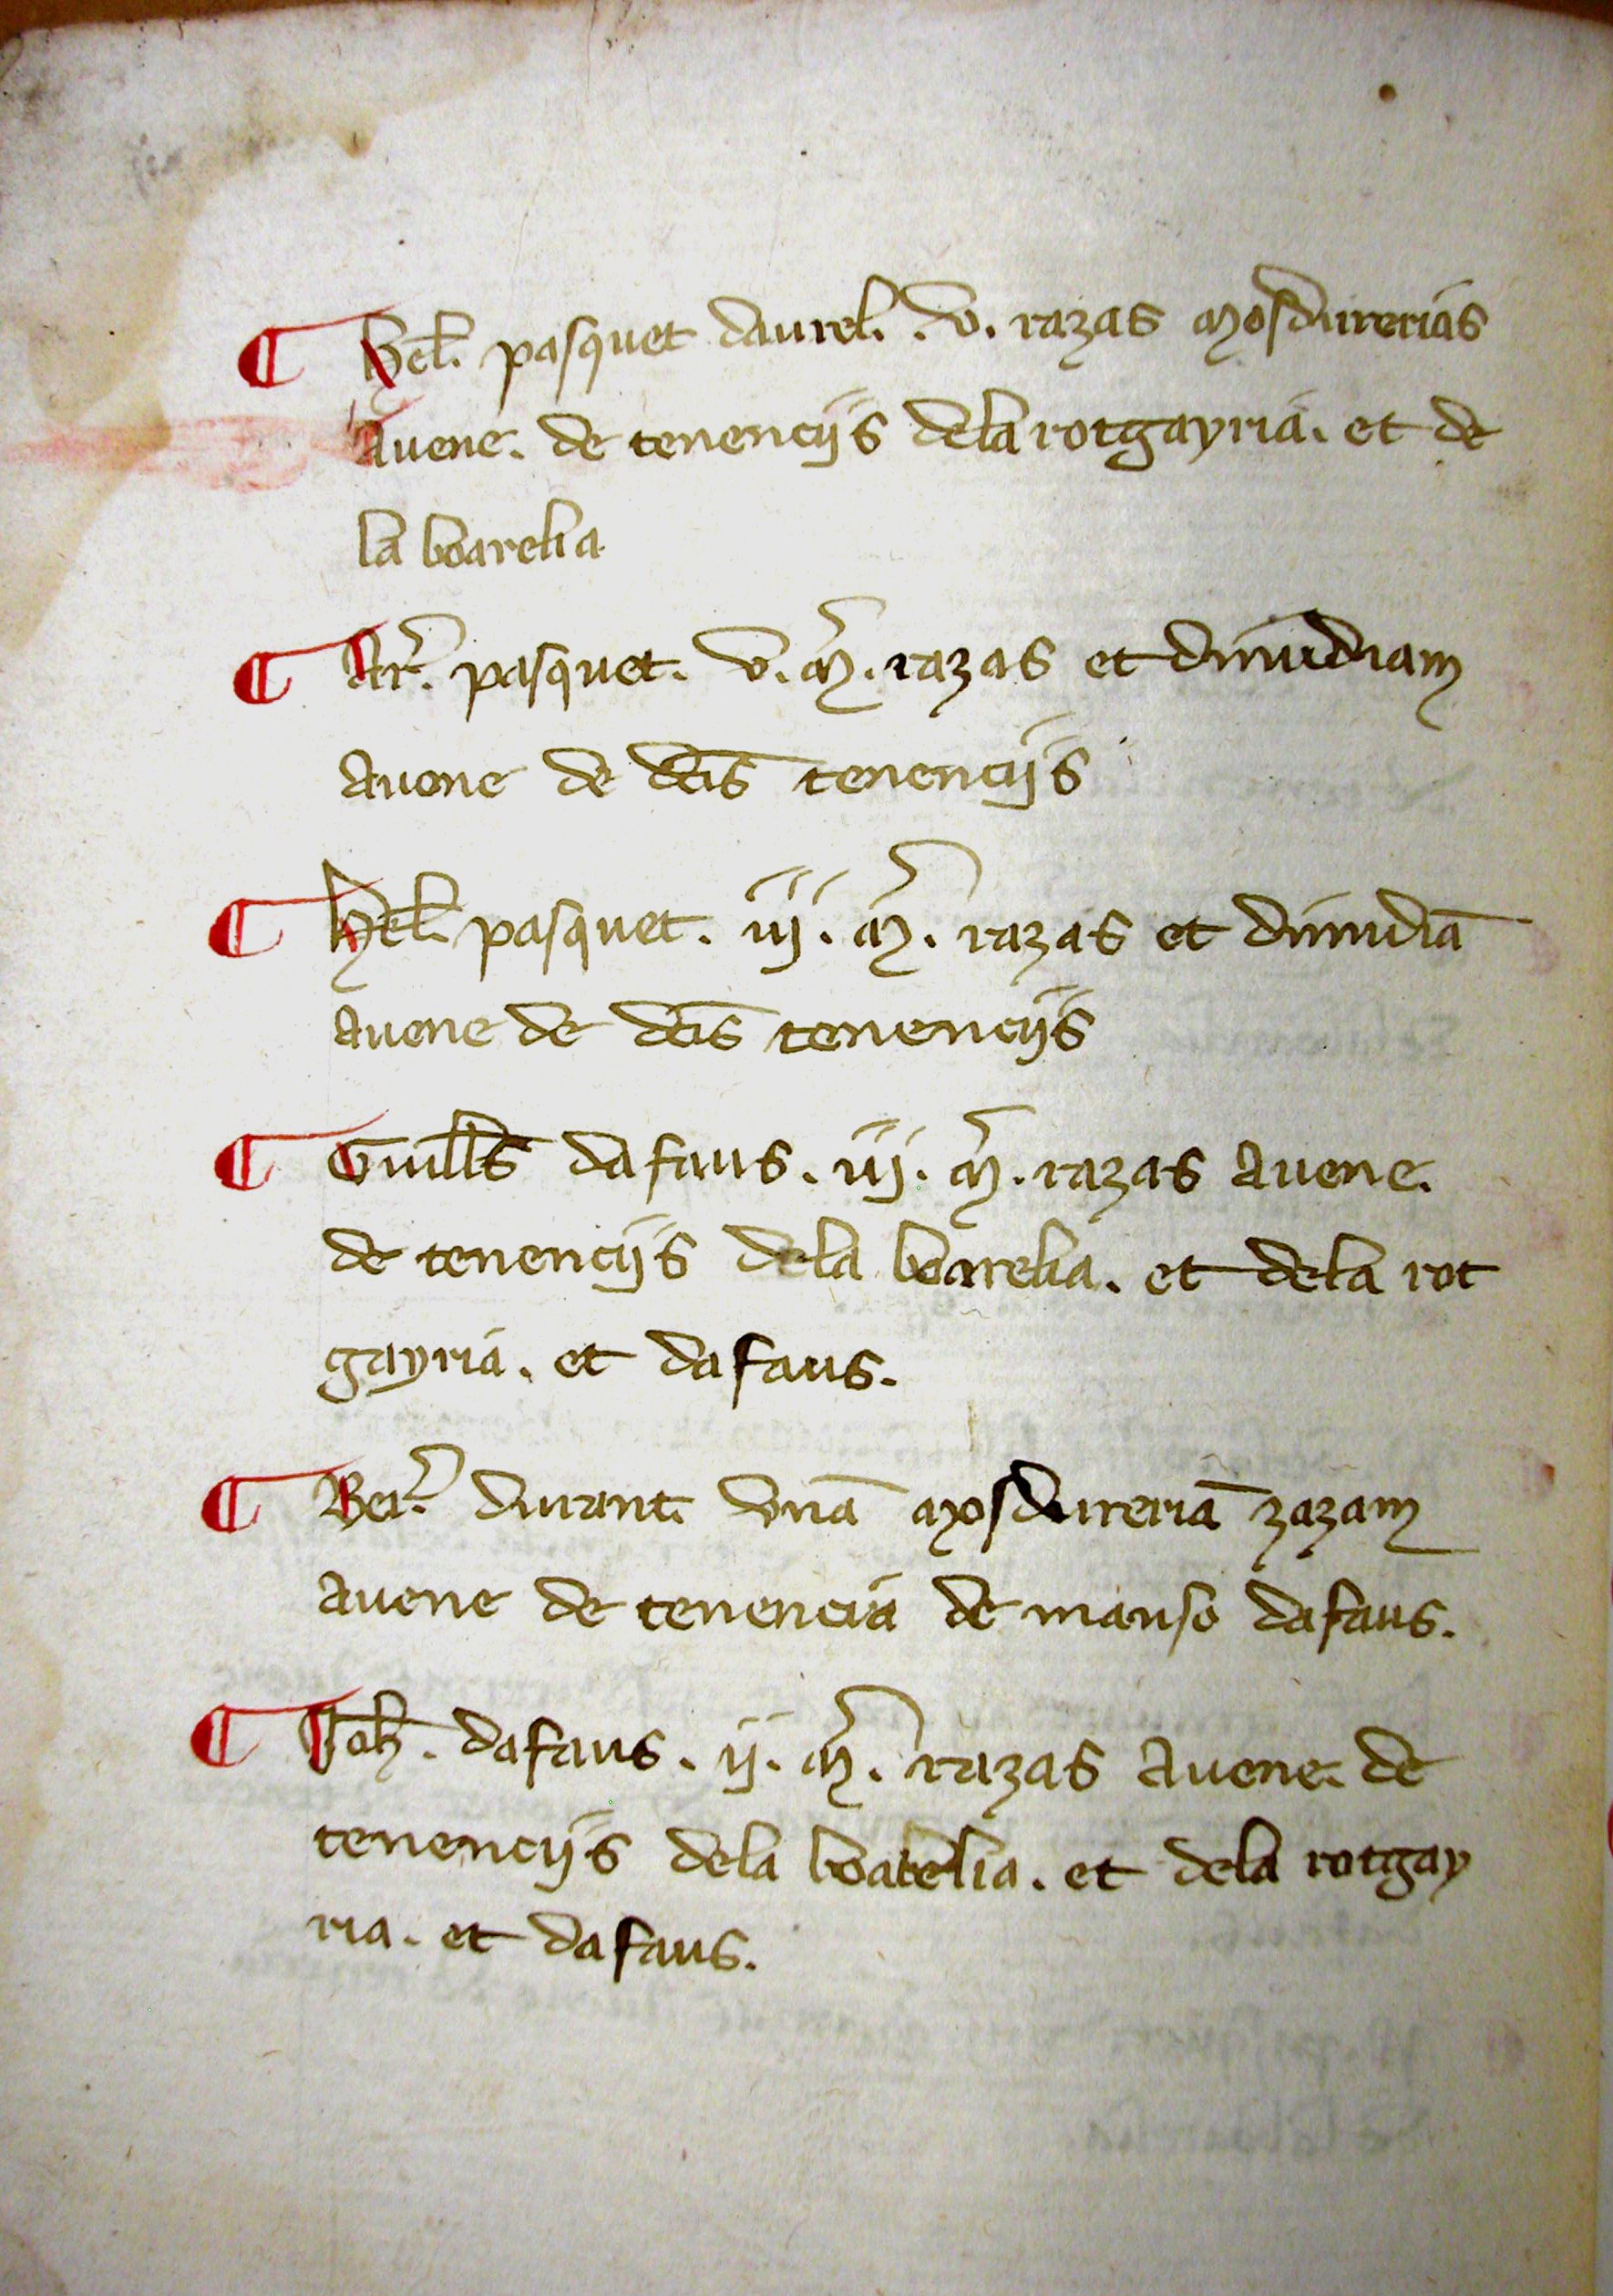 ¶ Hel̃. pasquet daurel̃. .v. razas mosdurerias
Auene. de tenencijs dela rotgayria. et de
la boarelia
¶ Ar̃. pasquet. v. m̃. razas et dimidiam
Auene de dc̃is tenencijs
¶ Hel̃. pasquet. iij. m̃. razas et dimidiã
Auene de dc̃is tenencijs
¶ Guill̃s dafaus. iij. m̃. razas Auene.
de tenencijs dela boarelia. et dela rot
gayria. et dafaus.
¶ Ber̃. durant. vnã mosdureriã zazam
Auene de tenencia de manso dafaus.
¶ Joh̃. dafaus. ij. m̃. razas Auene. de
tenencijs dela boarelia. et dela rotgay
ria. et dafaus.